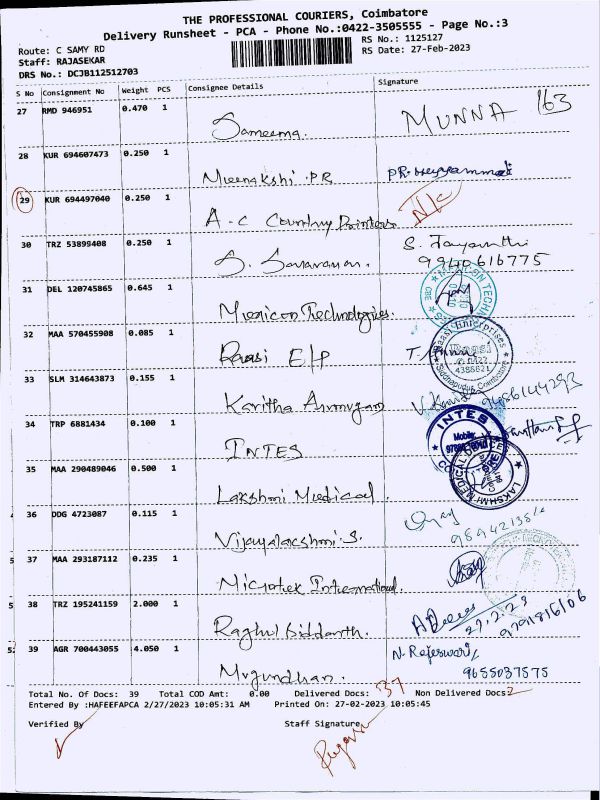 THE PROFESSIONAL COURIERS, Coimbatore
Delivery Runsheet - PCA - Phone No.:0422-3505555 - Page No.:3
Route: C SAMY RD
RS No.: 1125127
Staff: RAJASEKAR
RS Date: 27-Feb-2023
DRS No.: DCJB112512703
S No Consignment No Weight PCS Consignee Details Signature
27 RMD 946951 0.470 1 Sameema. MUNNA 163
28 KUR 694607473 0.250 1 Meenakshi PR
29 KUR 694497040 0.250 1 A-C Country Painters N/C
30 TRZ 53899408 0.250 1 S. Saravanan. S. Jayanthi
9940616775
31 DEL 120745865 0.645 1 Mexicon Technologies.
32 MAA 570455908 0.085 1 Raasi E/P
Raasi Enterprises
Raasi
0422
4388621
Siddhapudur, Coimbatore
33 SLM 314643873 0.155 1 Kavitha Arumugam 9486144293
34 TRP 6881434 0.100 1 INTES
INTES
Mobile:
35 MAA 290489046 0.500 1 Lakshmi Medical
LAKSHMI MEDICAL
36 DDG 4723087 0.115 1 Vijayalakshmi.S.
37 MAA 293187112 0.235 1 Microtek International.
38 TRZ 195241159 2.000 1 Raghul Siddanth. 27.2.23
9791816106
39 AGR 700443055 4.050 1 Mugundhan. N. Rajeswari
9655037575
Total No. Of Docs: 39 Total COD Amt: 0.00 Delivered Docs: 37 Non Delivered Docs: 2
Entered By :HAFEEFAPCA 2/27/2023 10:05:31 AM Printed On: 27-02-2023 10:05:45
Verified By Staff Signature